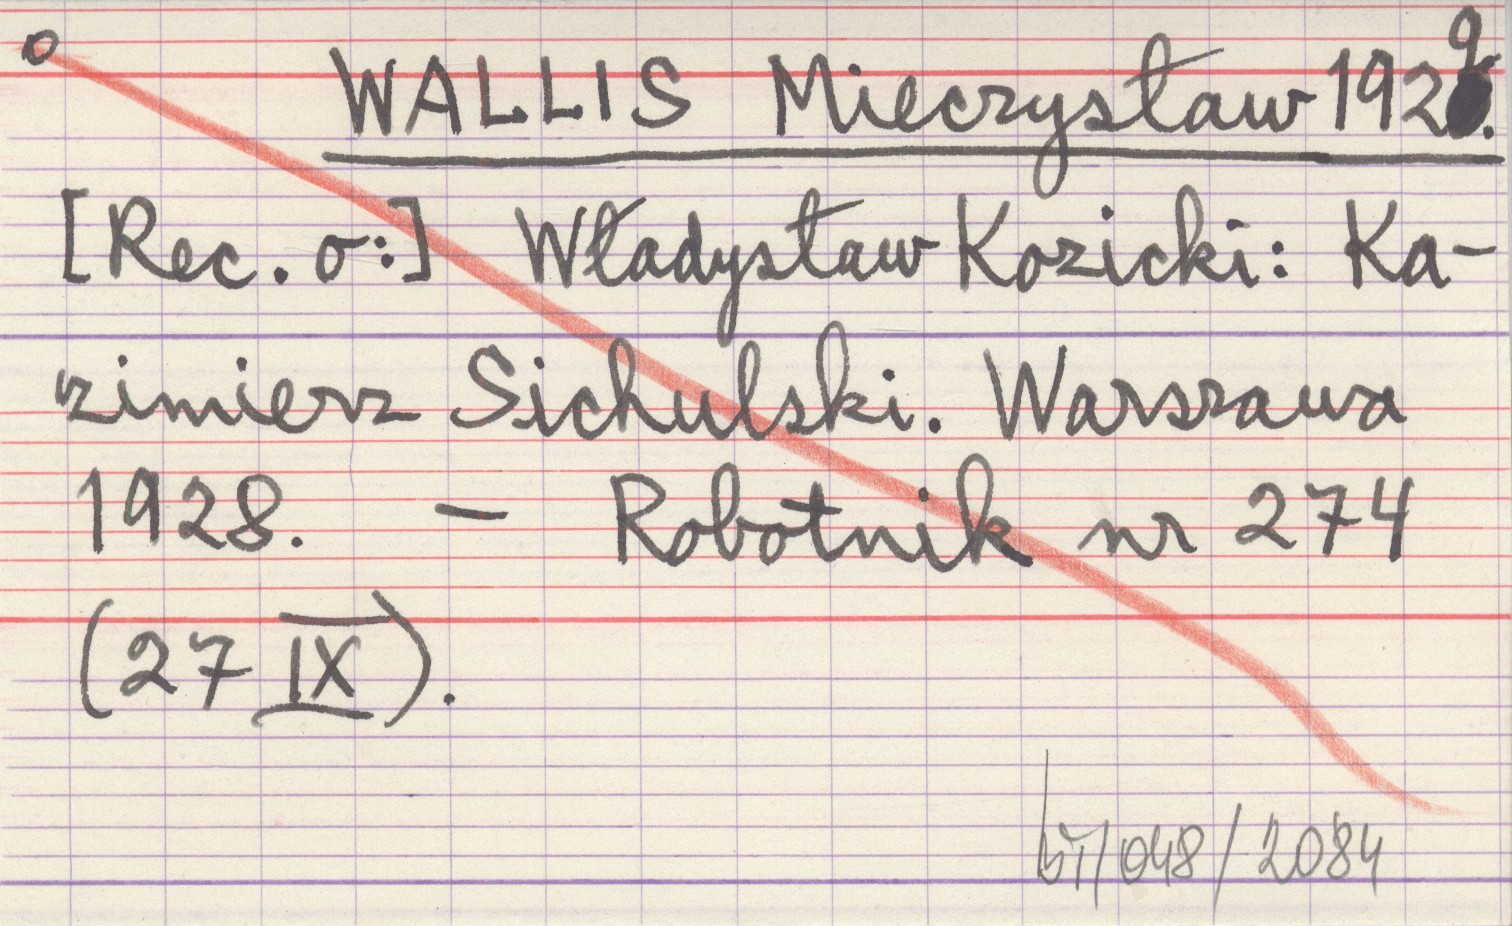 WALLIS Mieczysław 1929.
[Rec. o:] Władysław Kozicki: Ka-
zimierz Sichulski. Warszawa
1928. – Robotnik nr 274
(27 IX).
/048/2084